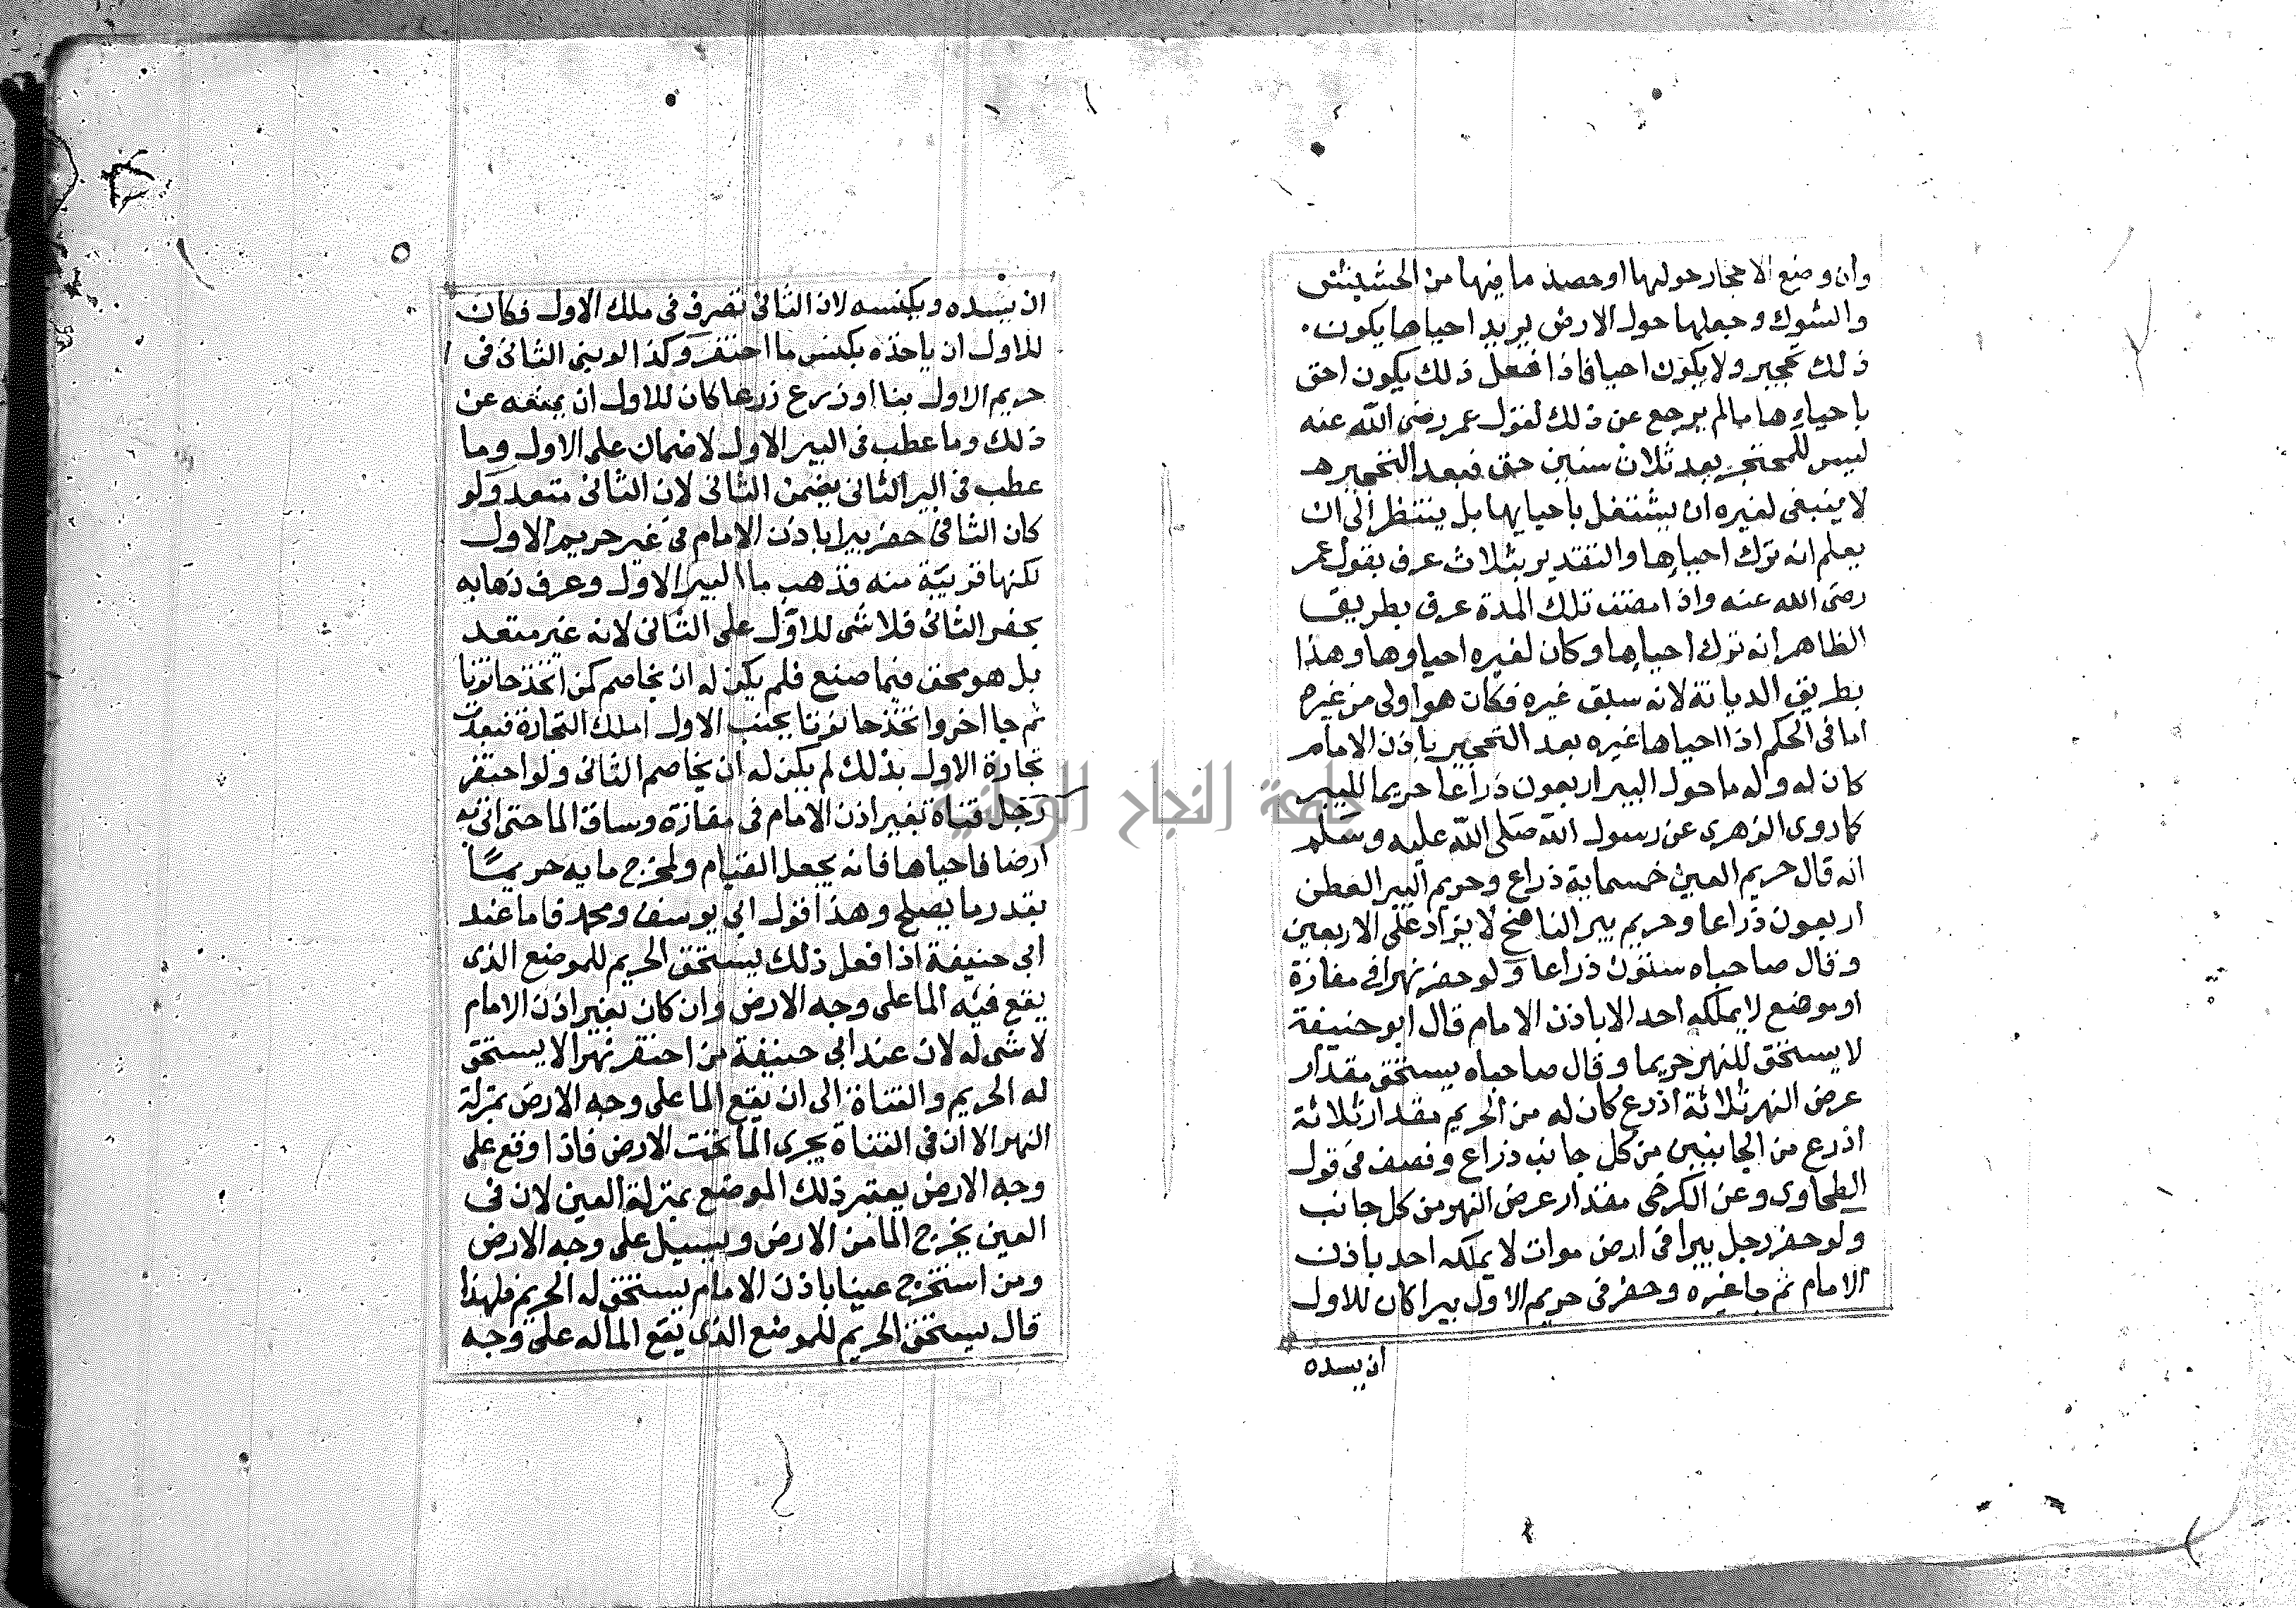 وان وضع الاحجار حولها او حصد ما فيها من الحشيش
والشوك وجعلها حول الارض يريد احياها يكون
ذلك تحجير ولا يكون احيا فاذا فعل ذلك يكون احق
باحياءها مالم يرجع عن ذلك لقول عمر رضى الله عنه
ليس للمحتجر بعد ثلاث سنين حق فبعد التحجير
لا ينبغى لغيره ان يشتغل باحيايها بل ينتظر الى ان
يعلم انه ترك احياءها والتقدير بثلاث عرف بقول عمر
رضى الله عنه واذا مضت تلك المدة عرف بطريق
الظاهر انه ترك احياءها وكان لغيره احياوها وهذا
بطريق الديانة لانه سبق غيره فكان هو اولى من غيره
اما فى الحكم اذا احياها غيره بعد التحجير باذن الامام
كان له وله ما حول البير اربعون ذراعا حريما للبير
كما روى الزهرى عن رسول الله صلى الله عليه وسلم
انه قال حريم العين خمسماية ذراع وحريم البير العطن
اربعون ذراعا وحريم بير الناضح لا يزاد على الاربعين
وقال صاحباه ستون ذراعا ولو حفر نهرا فى مفازة
او موضع لا يملكه احد الا باذن الامام قال ابو حنيفة
لا يستحق للنهر حريما وقال صاحباه يستحق مقدار
عرض النهر ثلاثة اذرع كان له من الحريم مقدار ثلاثة
اذرع من الجانبين من كل جانب ذراع ونصف فى قول
الطحاوى وعن الكرخى مقدار عرض النهر من كل جانب
ولو حفر رجل بيرا فى ارض موات لا يملكه احد باذن
الامام ثم جا غيره وحفر فى حريم الاول بيرا كان للاول
ان يسده
ان يسده ويكنسه لان الثانى تصرف فى ملك الاول فكان
للاول ان ياخذه بكنس ما احتفر وكذا لو بنى الثانى فى
حريم الاول بنا او زرع زرعا كان للاول ان يمنعه عن
ذلك وما عطب فى البير الاول لا ضمان على الاول وما
عطب فى البير الثانى يضمن الثانى لان الثانى متعد ولو
كان الثانى حفر بيرا باذن الامام فى غير حريم الاول
لكنها قريبة منه فذهب ما البير الاول وعرف ذهابه
بحفر الثانى فلا شى للاول على الثانى لانه غير متعد
بل هو محق فيما صنع فلم يكن له ان يخاصم كمن اتخذ حانوتا
ثم جا اخر واتخذ حانوتا بجنب الاول لملك التجارة فبعدت
تجارة الاول بذلك لم يكن له ان يخاصم الثانى ولو احتفر
رجل قناة بغير اذن الامام فى مفازة وساق الما حتى اتى به
ارضا فاحياها فانه يجعل القنام ولمخرج مايه حريمًا
بقدر ما يصلح وهذا قول ابى يوسف ومحمد فاما عند
ابى حنيفة اذا فعل ذلك يستحق الحريم للموضع الذى
يقع فيه الما على وجه الارض وان كان بغير اذن الامام
لا شى له لان عند ابى حنيفة من احتفر نهرا لا يستحق
له الحريم والقناة الى ان يقع الما على وجه الارض بمنزلة
النهر الا ان فى القناة يجرى الما تحت الارض فاذا وقع على
وجه الارض يعتبر ذلك الموضع بمنزلة العين لان فى
العين يخرج الما من الارض ويسيل على وجه الارض
ومن استخرج عينا باذن الامام يستحق له الحريم فلهذا
قال يستحق الحريم للموضع الذى يقع الما له على وجه
جامعة النجاح الوطنية